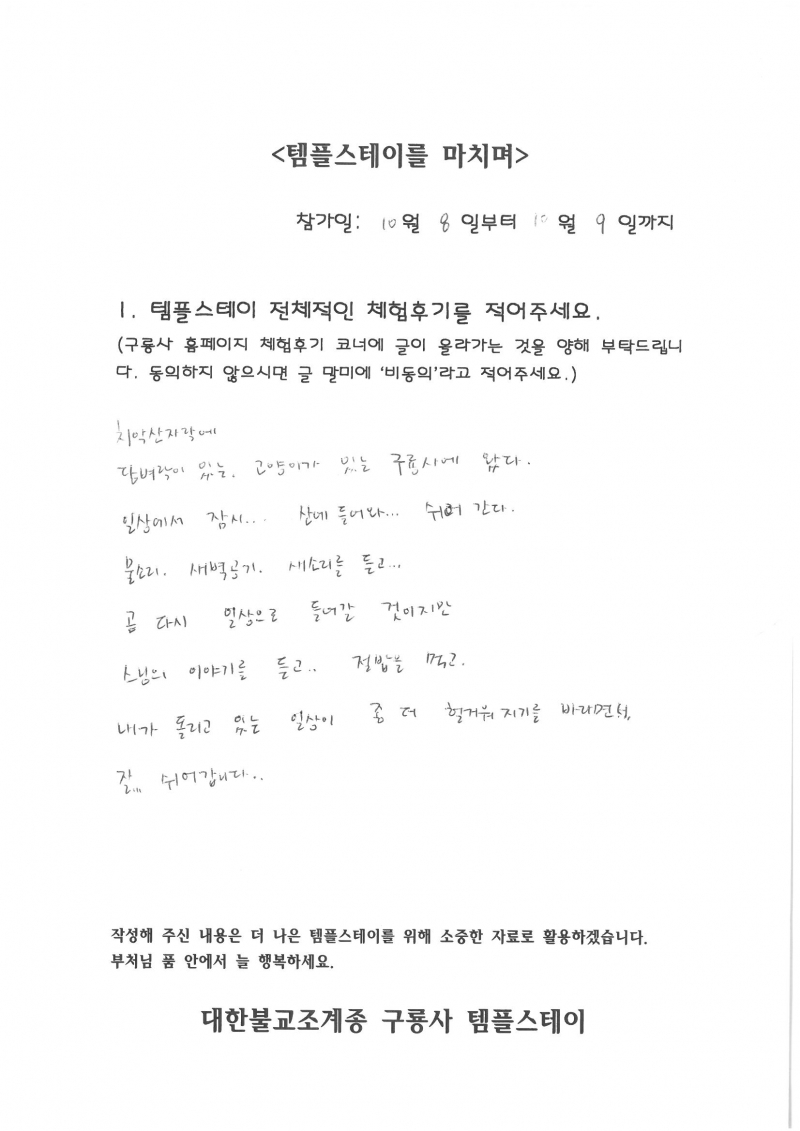 <템플스테이를 마치며>
참가일: 10월 8일부터 10월 9일까지
1. 템플스테이 전체적인 체험후기를 적어주세요.
(구룡사 홈페이지 체험후기 코너에 글이 올라가는 것을 양해 부탁드립니
다. 동의하지 않으시면 글 말미에 '비동의'라고 적어주세요.)
치악산자락에
담벼락이 있는. 고양이가 있는 구룡사에 왔다.
일상에서 잠시... 산에 들어와... 쉬어 간다.
물소리. 새벽공기. 새소리를 듣고...
곧 다시 일상으로 들어갈 것이지만
스님의 이야기를 듣고.. 절밥을 먹고.
내가 돌리고 있는 일상이 좀 더 헐거워지기를 바라면서,
잘... 쉬어갑니다..
작성해 주신 내용은 더 나은 템플스테이를 위해 소중한 자료로 활용하겠습니다.
부처님 품 안에서 늘 행복하세요.
대한불교조계종 구룡사 템플스테이